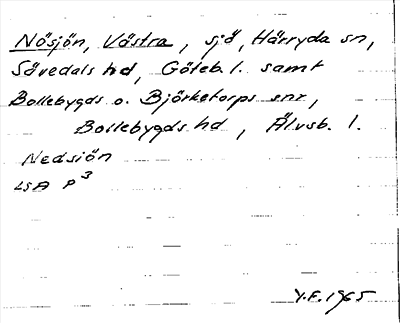 Nösjön, Västra, sjö, Härryda sn,
Sävedals hd, Göteb. l. samt
Bollebygds o. Björketorps snr,
Bollebygds hd, Älvsb. l.
Nedsiön
LSA P3
Y.F. 1965